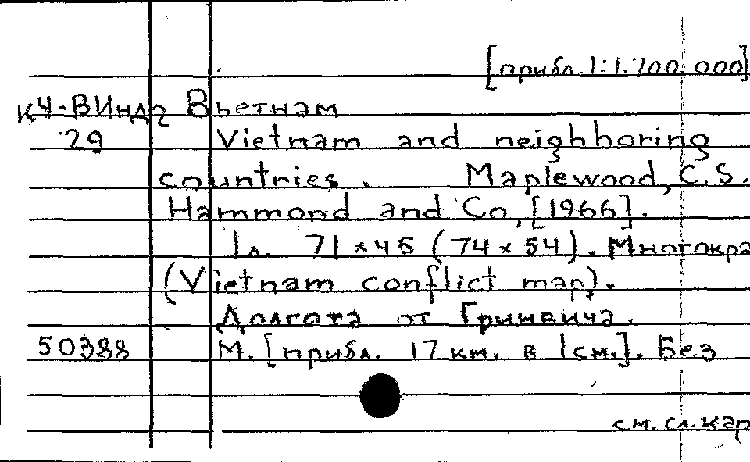 [прибл. 1:1.700.000]
К4-ВИнд2 Вьетнам
29 Vietnam and neighboring
countries. Maplewood, C.S.
Hammond and Co, [1966].
1л. 71×45 (74×54). Многокра
(Vietnam conflict map).
Долгота от Гринвича.
50388 М. [прибл. 17 км. в 1 см.]. Без
см. сл. кар